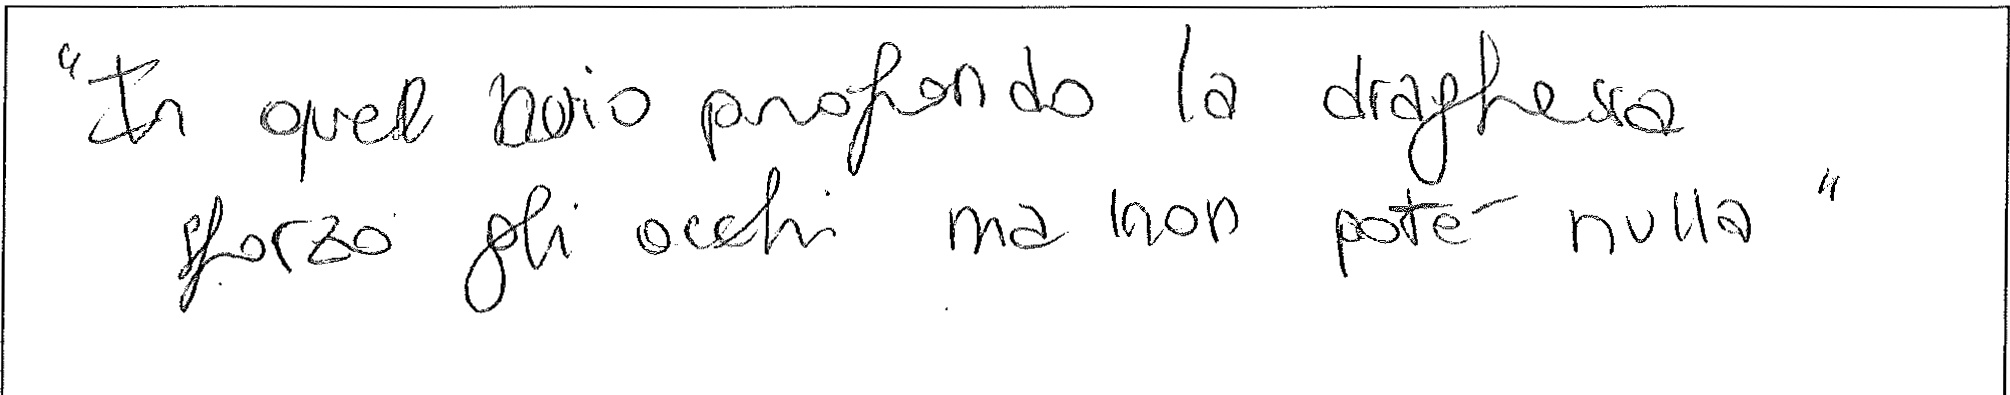 "In quel buio profondo la draghessa
sforzò gli occhi ma non poté nulla"